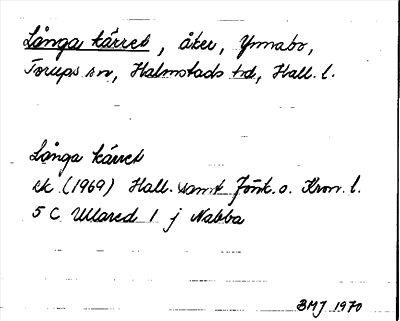 Långa kärret, åker, Ynnabo,
Torups sn, Halmstads hd, Hall. l.
Långa kärret
ek (1969) Hall. samt Jönk. o. Kron. l.
5 C Ullared 1 j Nabba
BMJ 1970